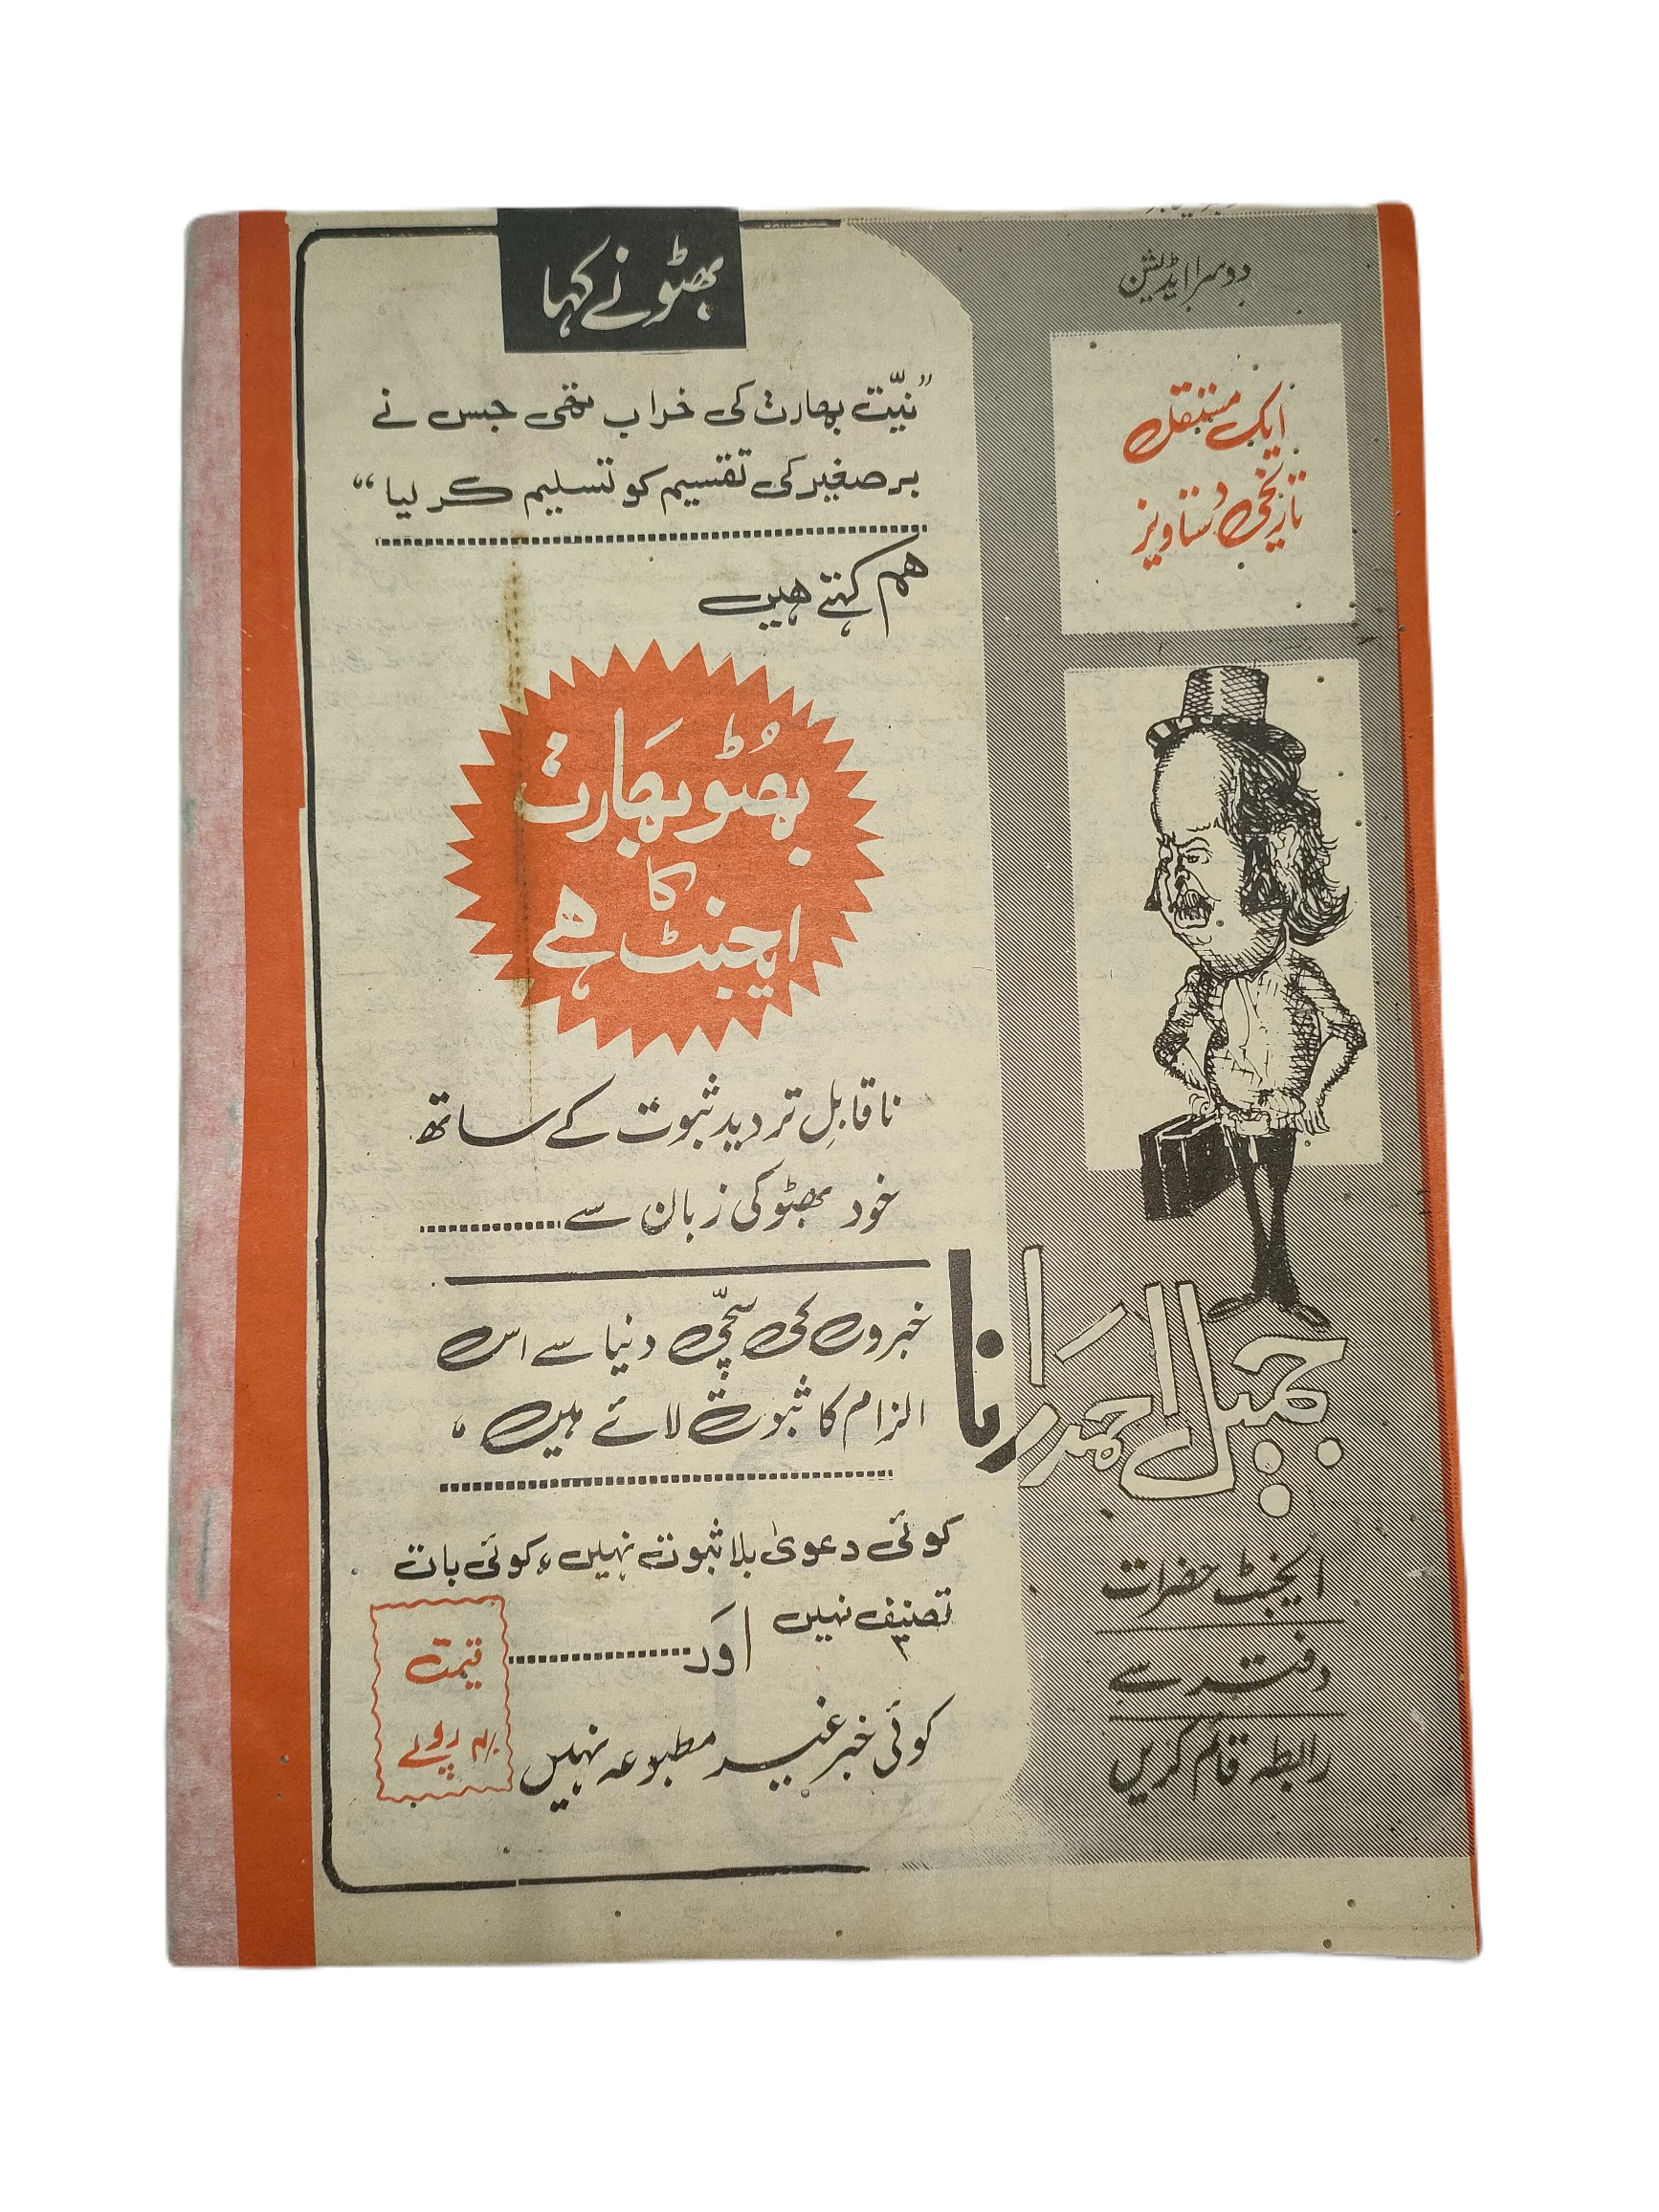 دوسرا ایڈیشن
ایک مستقل
تاریخی دستاویز
جمیل احمد رانا
ایجنٹ حضرات
دفتر سے
رابطہ قائم کریں
بھٹو نے کہا
”نیّت بھارت کی خراب تھی جس نے
برصغیر کی تقسیم کو تسلیم کر لیا“
ہم کہتے ہیں
بھُٹو بھَارت
کا
ایجنٹ ہے
ناقابلِ تردید ثبوت کے ساتھ
خود بھٹو کی زبان سے..........
خبروں کی سچّی دنیا سے اس
الزام کا ثبوت لائے ہیں،
کوئی دعویٰ بلا ثبوت نہیں، کوئی بات
تصنیف نہیں
اوَر..........
کوئی خبر غیر مطبوعہ نہیں
قیمت
روپے